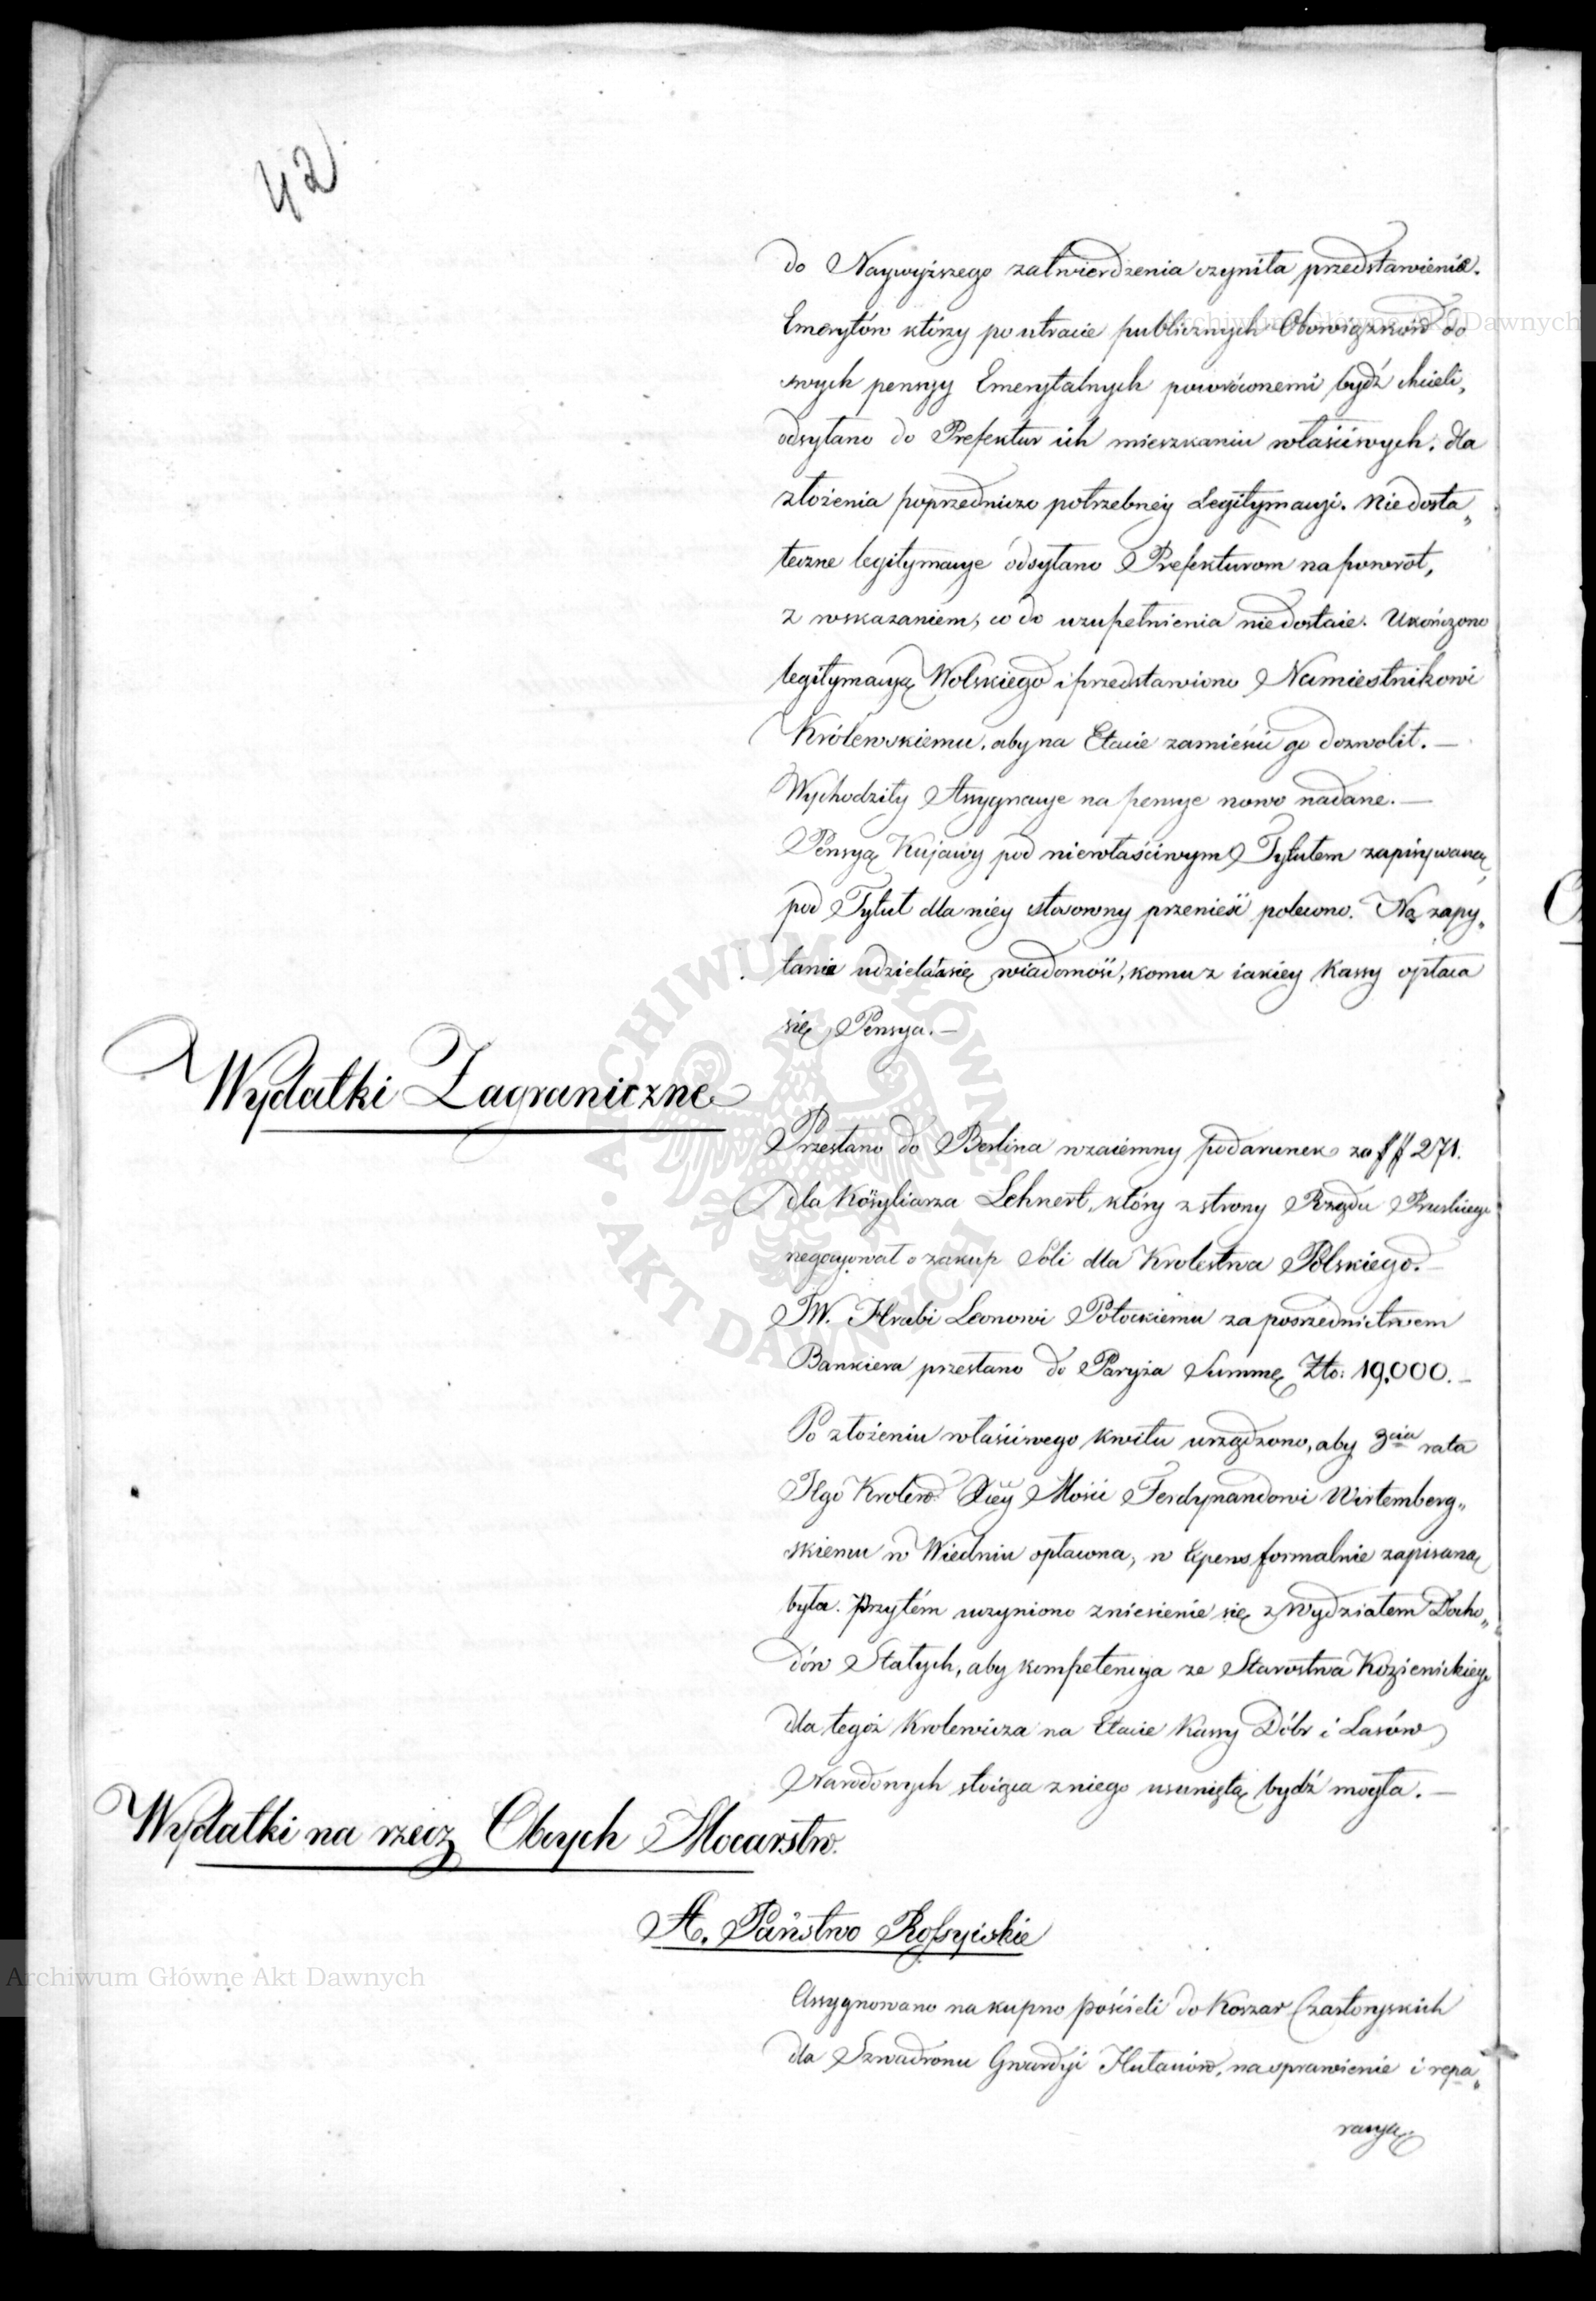 42
do Naywyższego zatwierdzenia czyniła przedstawienie.
Emerytów którzy po utracie publicznych Obowiązków do
swych pensyy Emerytalnych powróconemi bydź chcieli,
odsyłano do Prefektur ich mieszkaniu właściwych, dla
złożenia poprzedniczo potrzebney Legitymacyi. Niedosta„
teczne legitymacye odsyłano Prefekturom na powrót,
z wskazaniem, co do uzupełnienia niedostaie. Ukończono
legitymacyą Wolskiego i przedstawiono Namiestnikowi
Królewskiemu, aby na Etacie zamieścić go dozwolił. —
Wychodziły Assygnacye na pensye nowo nadane. —
Pensyą Kujawy pod niewłaściwym Tytułem zapisywaną
pod Tytuł dla niey stosowny przenieść polecono. Na zapy„
tanie udziela się wiadomość, komu z iakiey Kassy opłaca
się Pensya. —
Wydatki Zagraniczne
Przesłano do Berlina wzaiemny podarunek za ## 271.
dla Konsyliarza Lehnert, który z strony Rządu Pruskiego
negocyował o zakup Soli dla Krolestwa Polskiego. —
JW. Hrabi Leonowi Potockiemu za posrzednictwem
Bankiera przesłano do Paryża Summę Zło: 19,000. —
Po złożeniu właściwego kwitu urządzono, aby 3cia rata
Jego Krolew: Xcey Mości Ferdynandowi Wirtemberg„
skiemu w Wiedniu opłacona, w Expens formalnie zapisaną
była. Przytém uczyniono zniesienie się z Wydziałem Docho„
dów Stałych, aby kompetencya ze Starostwa Kozienickiego
dla tegóż Krolewicza na Etacie Kassy Dóbr i Lasów
Narodowych stoiąca z niego usuniętą bydź mogła. —
Wydatki na rzecz Obcych Mocarstw.
A. Państwo Rossyiskie
Assygnowano na kupno pościeli do Koszar Czartoryskich
dla Szwadronu Gwardyi Hułanów, na oprawienie i repa„
racyą
Archiwum Główne Akt Dawnych
Archiwum Główne Akt Dawnych
ARCHIWUM GŁÓWNE AKT DAWNYCH